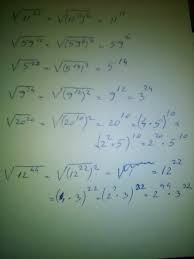 √11²² = √(11¹¹)² = 11¹¹
√59¹² = √(59⁶)² = 59⁶
√5²⁸ = √(5¹⁴)² = 5¹⁴
√9²⁴ = √(9¹²)² = 9¹² = 3²⁴
√20²⁰ = √(20¹⁰)² = 20¹⁰ = (4·5)¹⁰ =
(2²·5)¹⁰ = 2²⁰·5¹⁰
√12⁴⁴ = √(12²²)² = = 12²²
=(4·3)²² = (2²·3)²² = 2⁴⁴·3²²